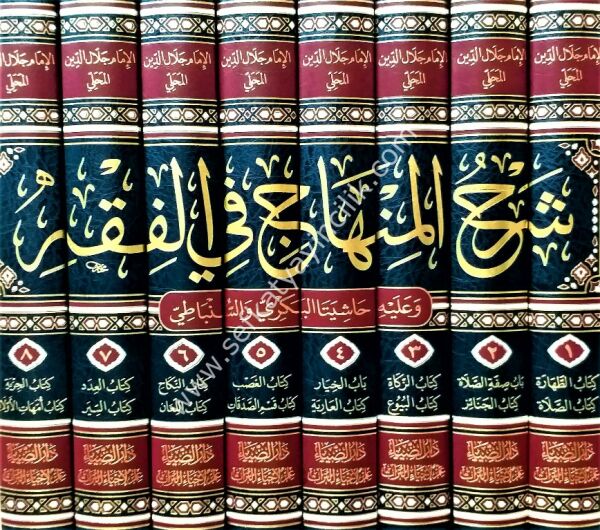 الإمام جلال الدين
المحلي
الإمام جلال الدين
المحلي
الإمام جلال الدين
المحلي
الإمام جلال الدين
المحلي
الإمام جلال الدين
المحلي
الإمام جلال الدين
المحلي
الإمام جلال الدين
المحلي
الإمام جلال الدين
المحلي
شَرْحُ المِنْهَاجِ فِي الفِقْهِ
وَعَلَيْهِ حَاشِيَتَا البَكْرِيّ وَالسُّنْبَاطِيّ
١
كتاب الطهارة
كتاب الصلاة
٢
باب صفة الصلاة
كتاب الجنائز
٣
كتاب الزكاة
كتاب البيوع
٤
باب الخيار
كتاب العارية
٥
كتاب الغصب
كتاب قسم الصدقات
٦
كتاب النكاح
كتاب اللعان
٧
كتاب العدد
كتاب السير
٨
كتاب الجزية
كتاب أمهات الأولاد
دار الضياء
دار الضياء
دار الضياء
دار الضياء
دار الضياء
دار الضياء
دار الضياء
دار الضياء
www.serhatyayincilik.com